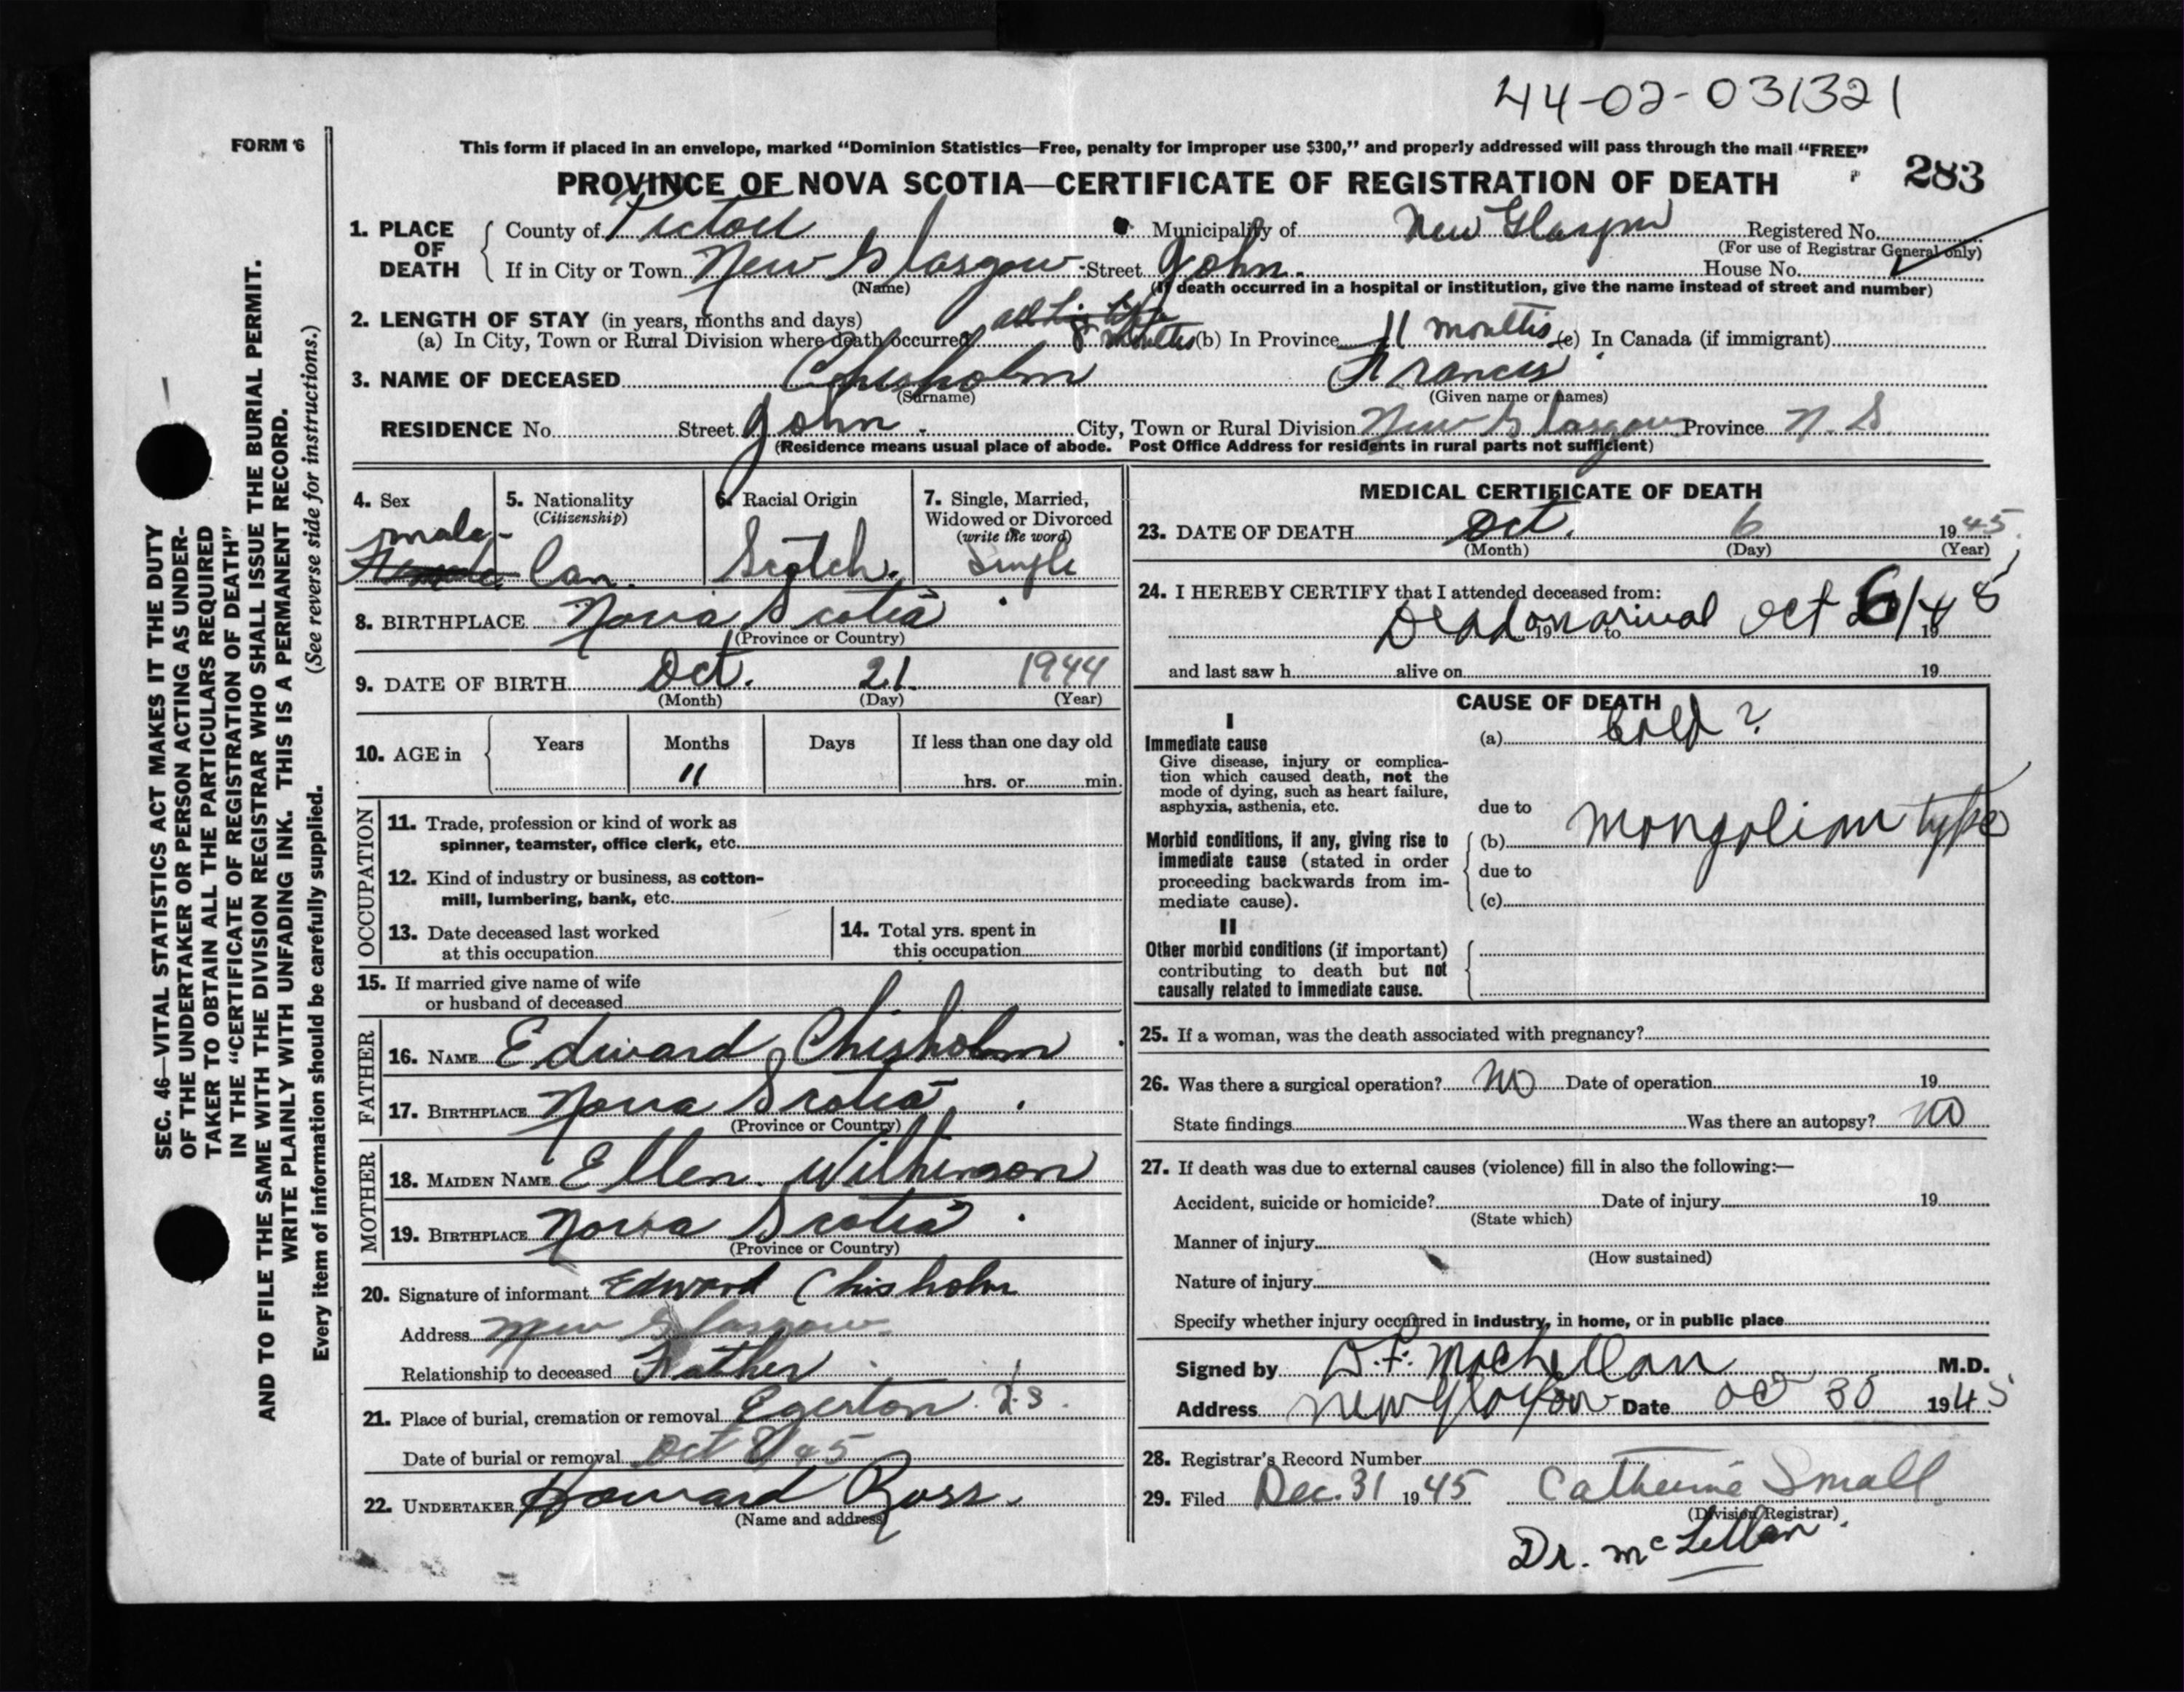 44-02-031321
FORM 6
This form if placed in an envelope, marked “Dominion Statistics—Free, penalty for improper use $300,” and properly addressed will pass through the mail “FREE”
283
PROVINCE OF NOVA SCOTIA—CERTIFICATE OF REGISTRATION OF DEATH
1. PLACE OF DEATH
County of Pictou Municipality of New Glasgow Registered No.
(For use of Registrar General only)
If in City or Town New Glasgow Street John. House No.
(Name) (If death occurred in a hospital or institution, give the name instead of street and number)
2. LENGTH OF STAY (in years, months and days) all his life
(a) In City, Town or Rural Division where death occurred 8 months (b) In Province 11 months (c) In Canada (if immigrant)
3. NAME OF DECEASED Chisholm Francis
(Surname) (Given name or names)
RESIDENCE No. Street John. City, Town or Rural Division New Glasgow Province N.S.
(Residence means usual place of abode. Post Office Address for residents in rural parts not sufficient)
4. Sex
male
Female
5. Nationality
(Citizenship)
Can.
6. Racial Origin
Scotch.
7. Single, Married,
Widowed or Divorced
(write the word)
Single
8. BIRTHPLACE Nova Scotia
(Province or Country)
9. DATE OF BIRTH Oct. 21 1944
(Month) (Day) (Year)
10. AGE in
Years Months Days If less than one day old
11 hrs. or min.
OCCUPATION
11. Trade, profession or kind of work as
spinner, teamster, office clerk, etc.
12. Kind of industry or business, as cotton-
mill, lumbering, bank, etc.
13. Date deceased last worked
at this occupation
14. Total yrs. spent in
this occupation
15. If married give name of wife
or husband of deceased
FATHER
16. NAME Edward Chisholm
17. BIRTHPLACE Nova Scotia
(Province or Country)
MOTHER
18. MAIDEN NAME Ellen Wilkinson
19. BIRTHPLACE Nova Scotia
(Province or Country)
20. Signature of informant Edward Chisholm
Address New Glasgow
Relationship to deceased Father
21. Place of burial, cremation or removal Egerton
Date of burial or removal Oct 8/45
22. UNDERTAKER Howard Ross.
(Name and address)
MEDICAL CERTIFICATE OF DEATH
23. DATE OF DEATH Oct. 6 1945
(Month) (Day) (Year)
24. I HEREBY CERTIFY that I attended deceased from:
Dead on arival Oct 6/45
19 to 19
and last saw h alive on 19
CAUSE OF DEATH
I
Immediate cause
Give disease, injury or complica-
tion which caused death, not the
mode of dying, such as heart failure,
asphyxia, asthenia, etc.
(a) Cold?
due to
Morbid conditions, if any, giving rise to
immediate cause (stated in order
proceeding backwards from im-
mediate cause).
(b) Mongolian type
due to
(c)
II
Other morbid conditions (if important)
contributing to death but not
causally related to immediate cause.
25. If a woman, was the death associated with pregnancy?
26. Was there a surgical operation? No Date of operation 19
State findings Was there an autopsy? No
27. If death was due to external causes (violence) fill in also the following:—
Accident, suicide or homicide? Date of injury 19
(State which)
Manner of injury
(How sustained)
Nature of injury
Specify whether injury occurred in industry, in home, or in public place
Signed by D.F. MacLellan M.D.
Address New Glasgow Date Oct 30 1945
28. Registrar's Record Number
29. Filed Dec. 31 1945 Catherine Small
(Division Registrar)
Dr. McLellan
SEC. 46—VITAL STATISTICS ACT MAKES IT THE DUTY
OF THE UNDERTAKER OR PERSON ACTING AS UNDER-
TAKER TO OBTAIN ALL THE PARTICULARS REQUIRED
IN THE “CERTIFICATE OF REGISTRATION OF DEATH”
AND TO FILE THE SAME WITH THE DIVISION REGISTRAR WHO SHALL ISSUE THE BURIAL PERMIT.
WRITE PLAINLY WITH UNFADING INK. THIS IS A PERMANENT RECORD.
Every item of information should be carefully supplied. (See reverse side for instructions.)